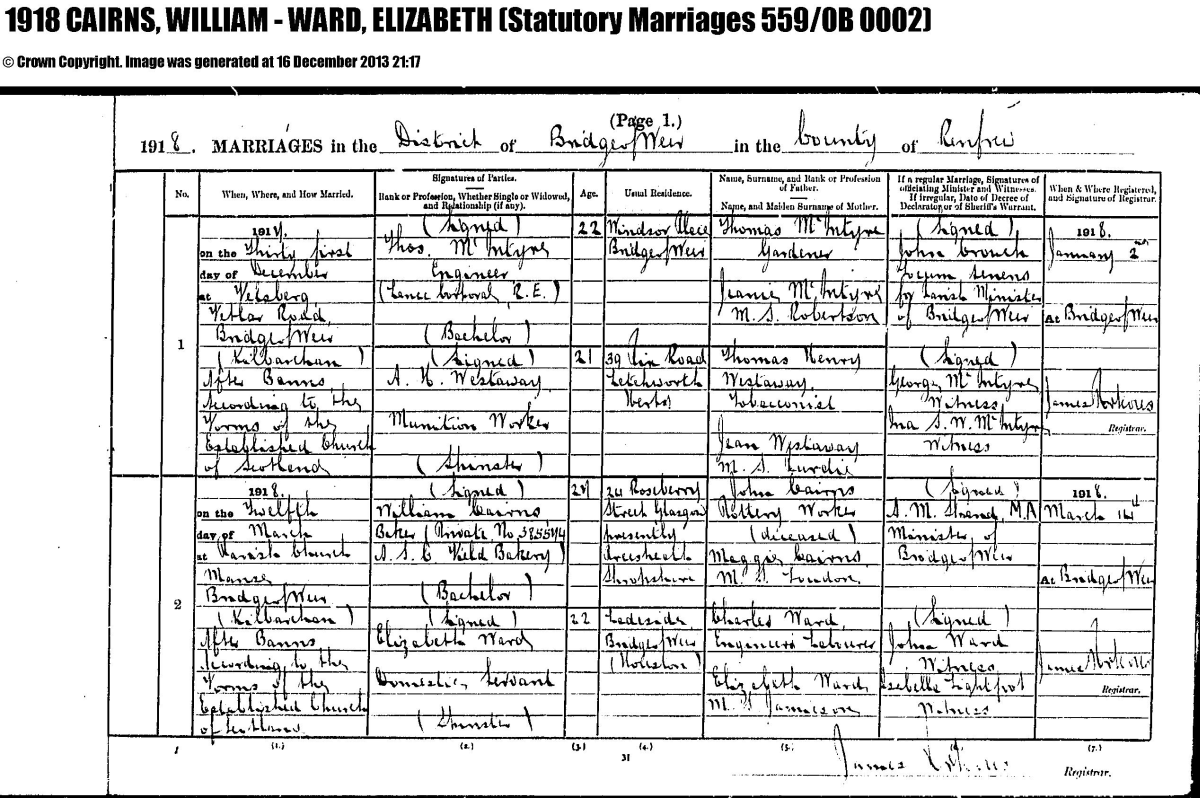 1918 CAIRNS, WILLIAM - WARD, ELIZABETH (Statutory Marriages 559/0B 0002)
© Crown Copyright. Image was generated at 16 December 2013 21:17
(Page 1.)
1918. MARRIAGES in the District of Bridge of Weir in the County of Renfrew
No.
When, Where, and How Married.
Signatures of Parties.
Rank or Profession, Whether Single or Widowed, and Relationship (if any).
Age.
Usual Residence.
Name, Surname, and Rank or Profession of Father.
Name, and Maiden Surname of Mother.
If a regular Marriage, Signatures of officiating Minister and Witnesses.
If irregular, Date of Decree of Declarator, or of Sheriff's Warrant.
When & Where Registered, and Signature of Registrar.
1
1917.
on the Thirty first
day of December
at
Road,
Bridge of Weir
(Kilbarchan)
After Banns
According to the
Forms of the
Established Church
of Scotland
(Signed)
Thos. McIntyre
Engineer
(Lance Corporal, R.E.)
(Bachelor)
(Signed)
A. H. Westaway
Munition Worker
(Spinster)
22
21
Windsor Place
Bridge of Weir
39 Road
Letchworth
Herts
Thomas McIntyre
Gardener
Jeanie McIntyre
M.S. Robertson
Thomas Henry
Westaway,
Tobacconist
Jean Westaway
M.S.
(Signed)
John Crouch
Locum tenens
for Parish Minister
of Bridge of Weir
(Signed)
George McIntyre
Witness
Ina S. W. McIntyre
Witness
1918.
January 2nd
At Bridge of Weir
James
Registrar.
2
1918.
on the Twelfth
day of March
at Parish Church
Manse
Bridge of Weir
(Kilbarchan)
After Banns
According to the
Forms of the
Established Church
of Scotland
(Signed)
William Cairns
Baker (Private No.
A.S.C. Field Bakery)
(Bachelor)
(Signed)
Elizabeth Ward
Domestic Servant
(Spinster)
22
24 Roseberry
Street Glasgow
presently
Preesheath
Shropshire
Ladeside
Bridge of Weir
(Houston)
John Cairns
Pottery Worker
(deceased)
Maggie Cairns
M.S. Loudon
Charles Ward,
Engineers Labourer
Elizabeth Ward
M.S. Jamieson
(Signed)
A. M. M.A
Minister of
Bridge of Weir
(Signed)
John Ward
Witness
Isabella Lightfoot
Witness
1918.
March 14th
At Bridge of Weir
James
Registrar.
1
(1.)
(2.)
(3.)
(4.)
(5.)
(6.)
(7.)
M
James
Registrar.